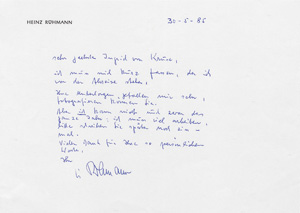 HEINZ RÜHMANN
30-5-86
sehr geehrte Ingrid von Kruse,
ich muss mich kurz fassen, da ich
vor der Abreise stehe.
Ihre Unterlagen gefallen mir sehr,
fotografieren können Sie.
ich kann nicht und zwar das
ganze Jahr. ich muss viel arbeiten,
bitte schreiben Sie später noch ein-
mal.
Vielen Dank für Ihre so persönlichen
Worte.
Ihr
Rühmann